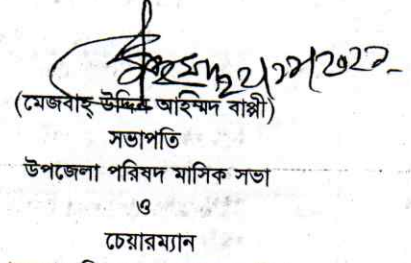 (মেজবাহ্ উদ্দিন আহম্মদ বাপ্পী)
সভাপতি
উপজেলা পরিষদ মাসিক সভা
ও
চেয়ারম্যান